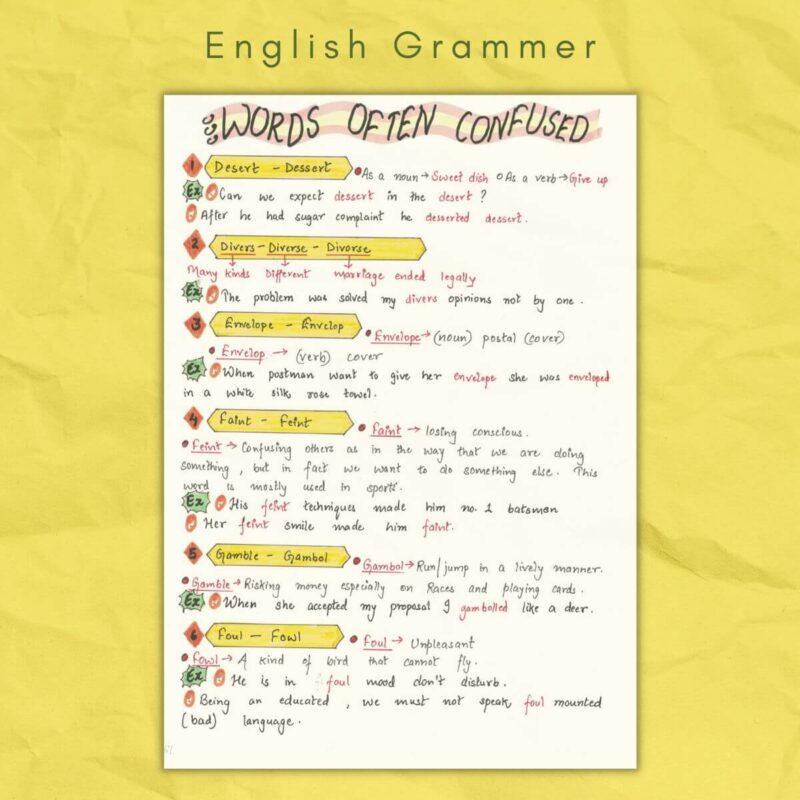 English Grammer
WORDS OFTEN CONFUSED
1 Desert - Dessert As a noun → Sweet dish As a verb → Give up
Ex Can we expect dessert in the desert ?
After he had sugar complaint he deserted dessert.
2 Divers - Diverse - Divorse
Many kinds Different marriage ended legally
Ex The problem was solved my divers opinions not by one .
3 Envelope - Envelop Envelope → (noun) postal (cover)
Envelop → (verb) cover
Ex When postman want to give her envelope she was enveloped
in a white silk rose towel.
4 Faint - Feint faint → losing conscious.
Feint → Confusing others as in the way that we are doing
something , but in fact we want to do something else. This
word is mostly used in sports.
Ex His feint techniques made him no. 1 batsman
Her feint smile made him faint.
5 Gamble - Gambol Gambol → Run/jump in a lively manner.
Gamble → Risking money especially on Races and playing cards.
Ex When she accepted my proposal I gambolled like a deer.
6 Foul - Fowl Foul → Unpleasant
Fowl → A kind of bird that cannot fly.
Ex He is in foul mood don't disturb.
Being an educated , we must not speak foul mounted
(bad) language.